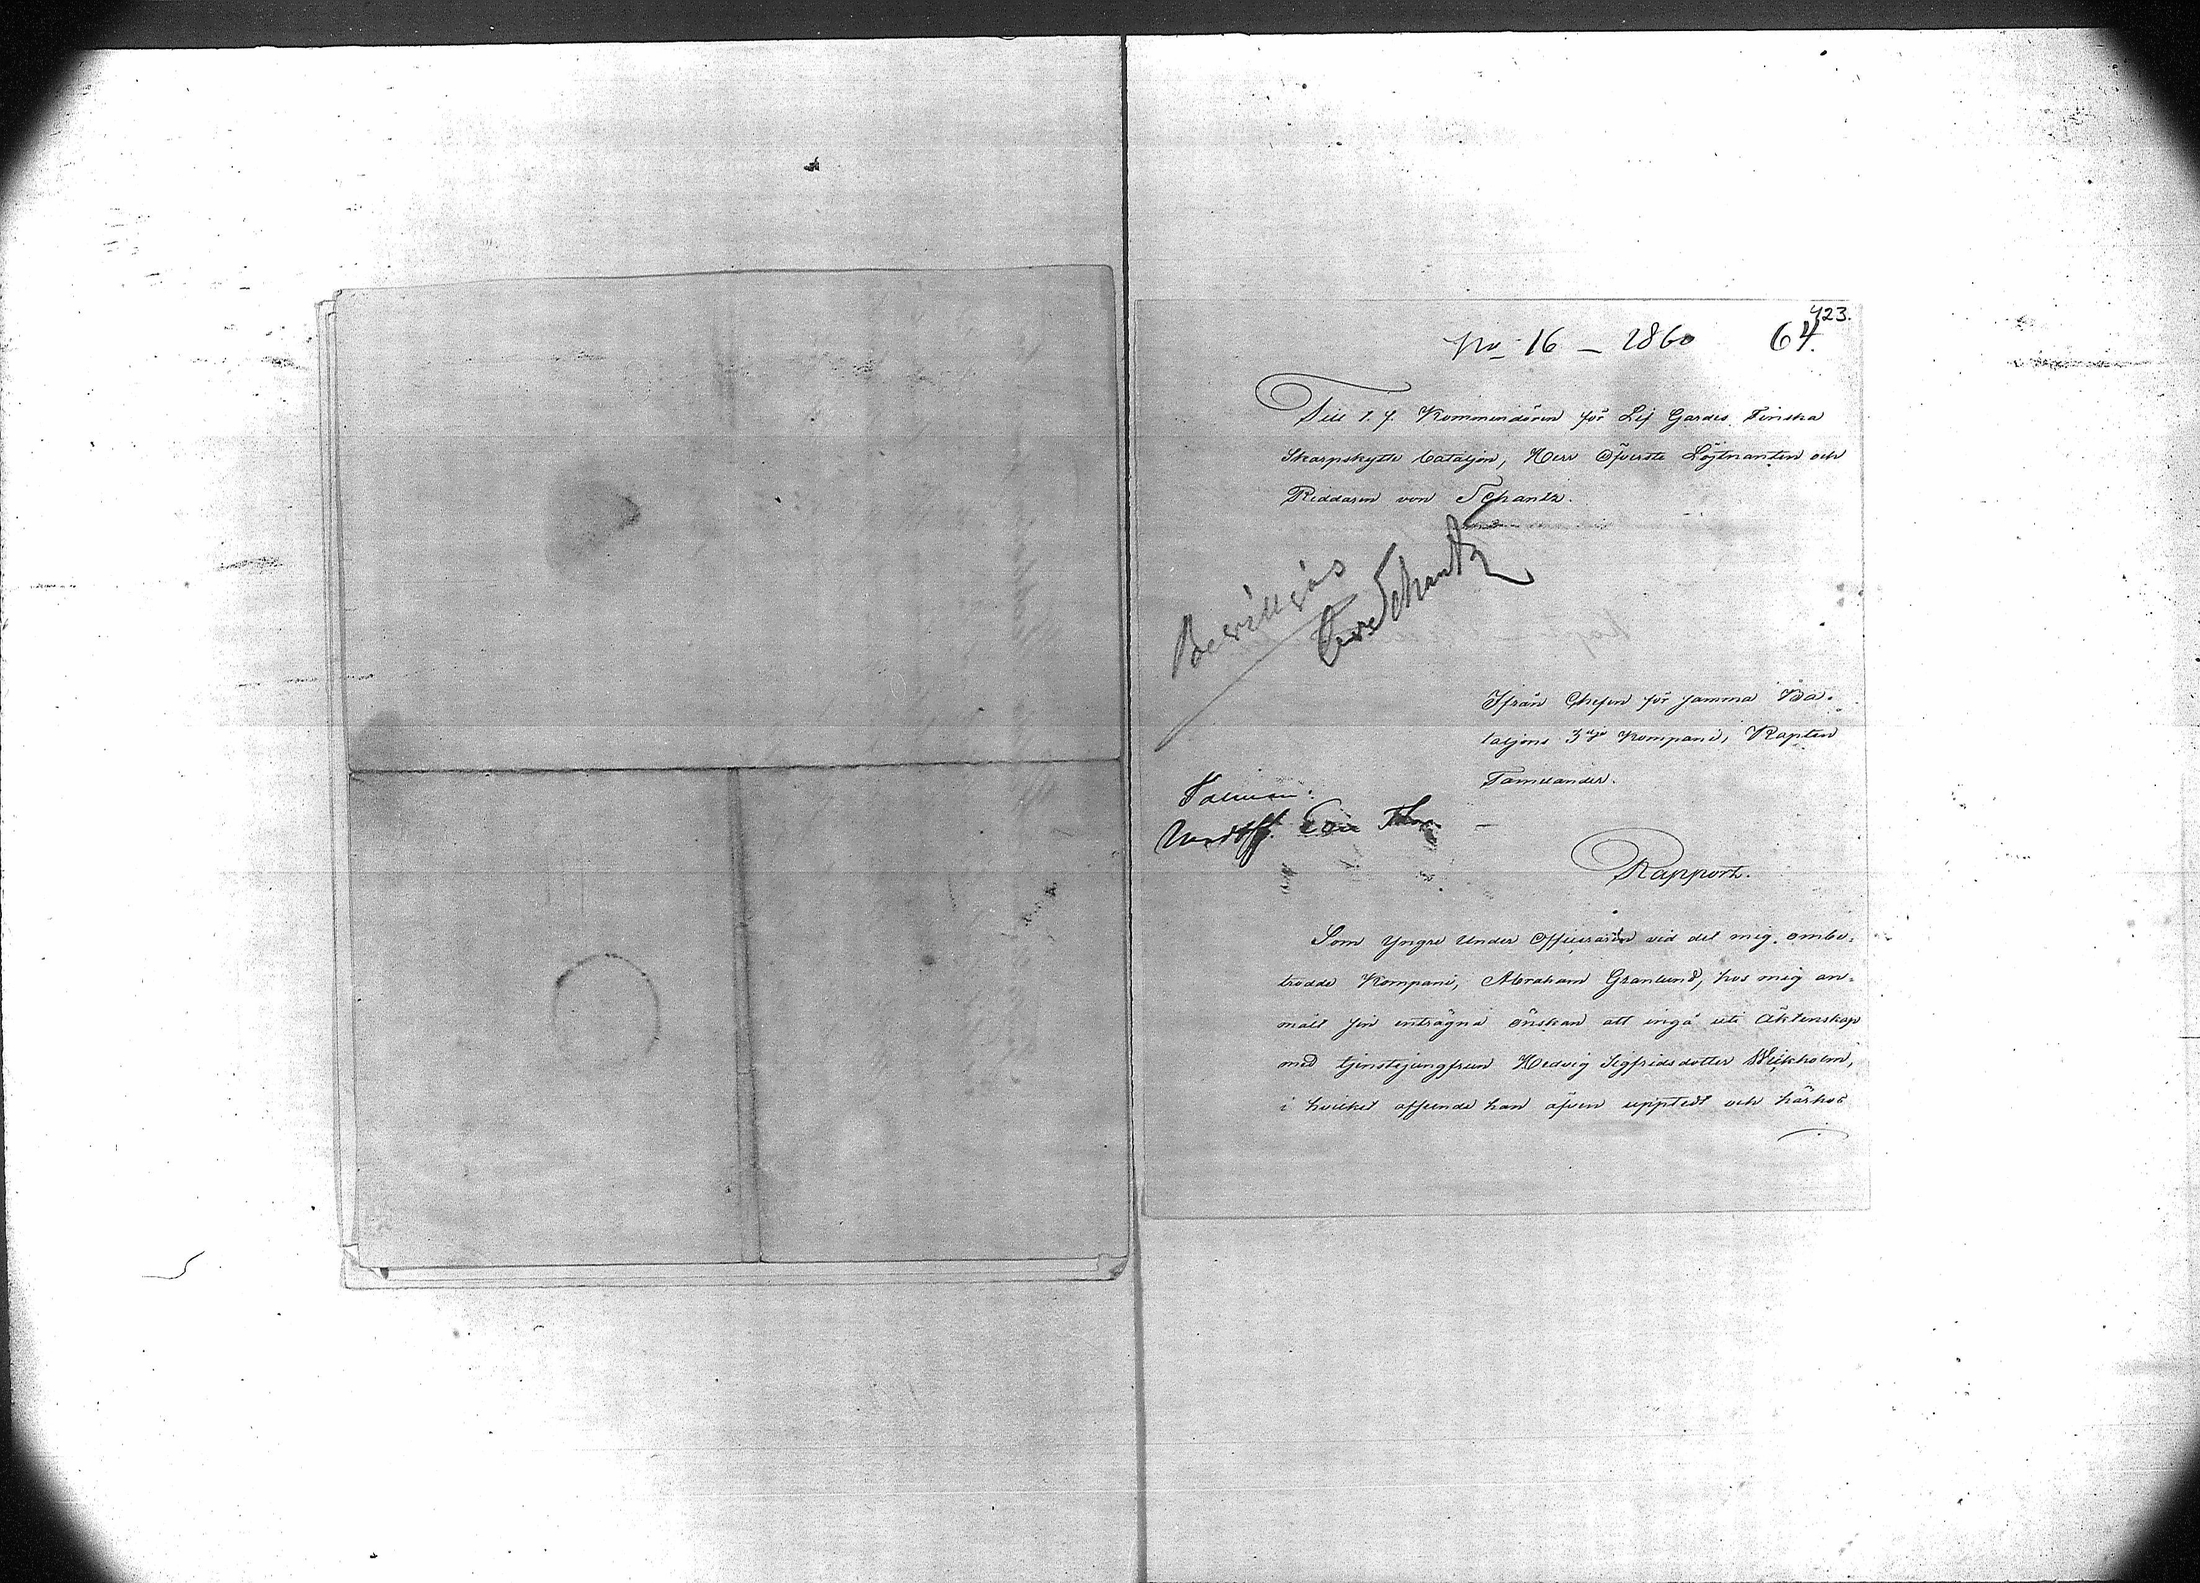 423.
No 16 – 1860 64.
Till t. f. Kommendören för Lif Gardes Finska
Skarpskytte bataljon, Herr Öfverste Löjtnanten och
Riddaren von Schantz.
Beviljas
von Schantz
Ifrån Chefen för samma Ba-
taljons 3dje Kompani, Kapten
Tamelander.
Rapport.
Som yngre Under Officeraren vid det mig ombe-
trodde Kompani, Abraham Granlund, hos mig an-
mält sin enträgna önskan att ingå uti Äktenskap
med tjenstejungfrun Hedvig Sigfridsdotter Wikholm,
i hvilket afseende han äfven upptedt och härhos